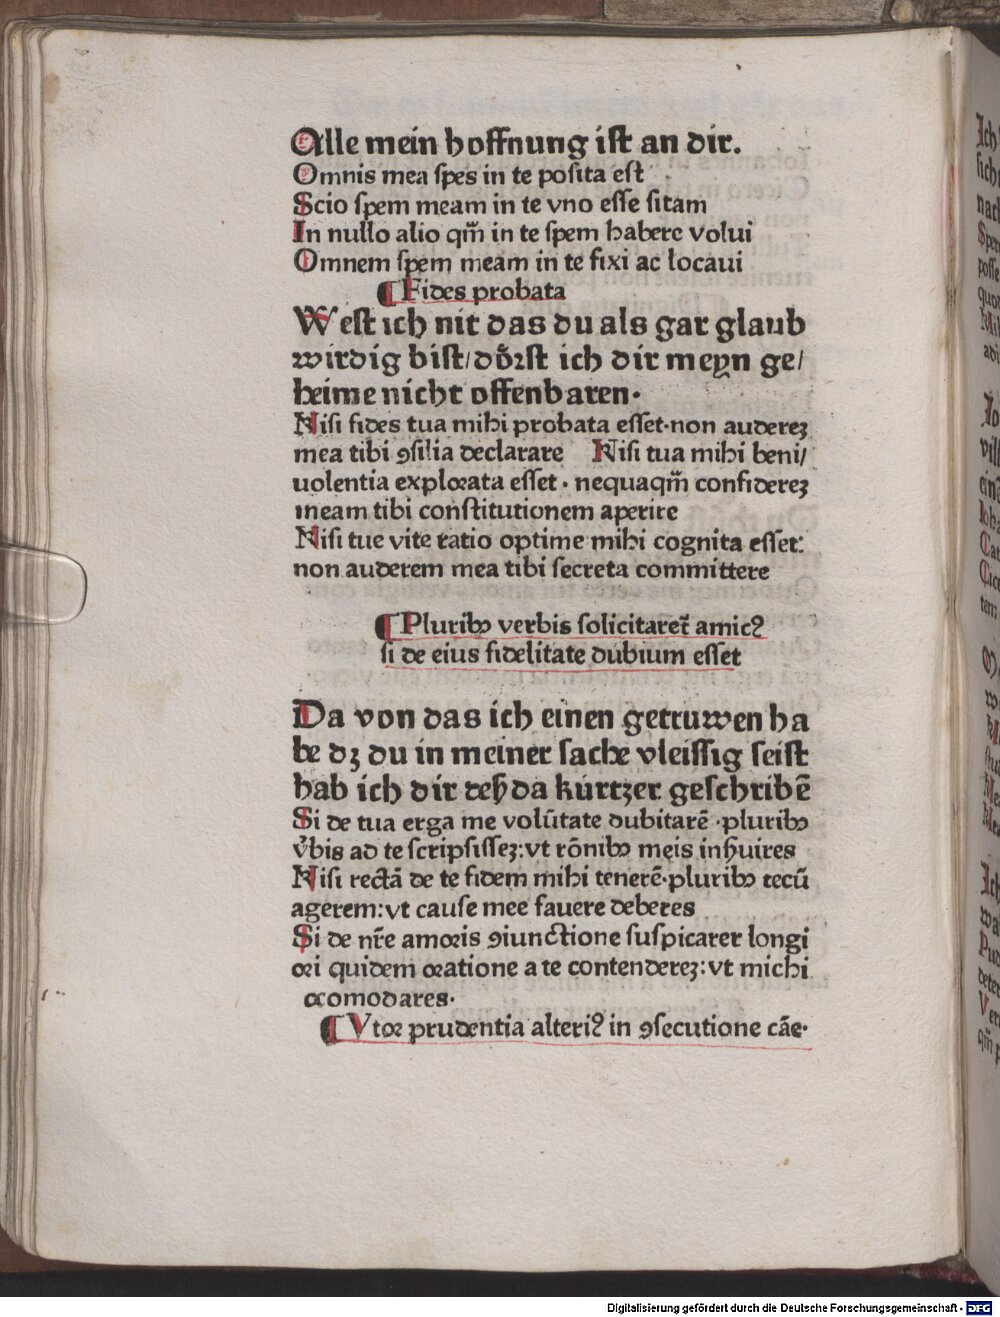 Alle mein hoffnung ist an dir.
Omnis mea spes in te posita est
Scio spem meam in te vno esse sitam
In nullo alio qm̄ in te spem habere volui
Omnem spem meam in te fixi ac locaui
¶ Fides probata
West ich nit das du als gar glaub
wirdig bist/ dőrst ich dir meyn ge/
heime nicht offenbaren.
Nisi fides tua mihi probata esset·non audereʒ
mea tibi ꝯsilia declarare Nisi tua mihi beni/
uolentia explorata esset · nequaqm̄ confidereʒ
meam tibi constitutionem aperire
Nisi tue vite ratio optime mihi cognita esset:
non auderem mea tibi secreta committere
¶ Pluribꝰ verbis solicitaret̄ amicꝰ
si de eius fidelitate dubium esset
Da von das ich einen getruwen ha
be dʒ du in meiner sache vleissig seist
hab ich dir deß da kurtzer geschribē
Si de tua erga me volūtate dubitarē ·pluribꝰ
v̓bis ad te scripsisseʒ:vt rōnibꝰ meis inßuires
Nisi rectā de te fidem mihi tenerē·pluribꝰ tecū
agerem:vt cause mee fauere deberes
Si de nr̄e amoris ꝯiunctione suspicarer longi
ori quidem oratione a te contendereʒ:vt michi
acomodares·
¶ Vtor prudentia alteriꝰ in ꝯsecutione cāe·
Digitalisierung gefördert durch die Deutsche Forschungsgemeinschaft - DFG